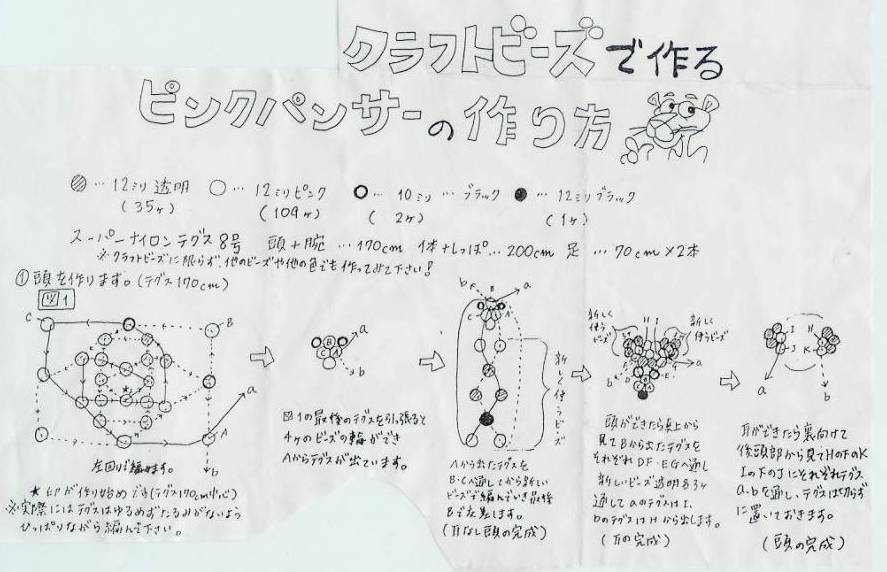 クラフトビーズで作る
ピンクパンサーの作り方
… 12ミリ 透明 … 12ミリピンク … 10ミリ … ブラック … 12ミリブラック
(35ヶ) (109ヶ) (2ヶ) (1ヶ)
スーパーナイロンテグス8号 頭+腕 …170cm 体+しっぽ…200cm 足 …70cm×2本
※クラフトビーズに限らず、他のビーズや他の色でも作ってみて下さい!
①頭を作ります。(テグス170cm)
図1
C
B
a
A
b
左回りで編みます。
★印が作り始めです(テグス170cm中心)
※実際にはテグスはゆるめずたるみがないよう
ひっぱりながら編んで下さい。
a
B
C A
b
図1の最後のテグスを引っ張ると
4ヶのビーズの輪ができ
Aからテグスが出ています。
b B a
C A
新しく使うビーズ
Aから出たテグスを
B・Cへ通してから新しい
ビーズで編んでいき最後
Bで交差します。
(耳なし頭の完成)
新しく使うビーズ
H I
新しく使うビーズ
a
b
頭ができたら真上から
見てBから出たテグスを
それぞれDF・EGへ通し
新しいビーズ透明各3ヶ
通してaのテグスはI、
bのテグスはHから出します。
(耳の完成)
I H
J K
a
b
耳ができたら裏向けて
後頭部から見てHの下のK
Iの下のJにそれぞれテグス
a.bを通し、テグスは切らず
に置いておきます。
(頭の完成)